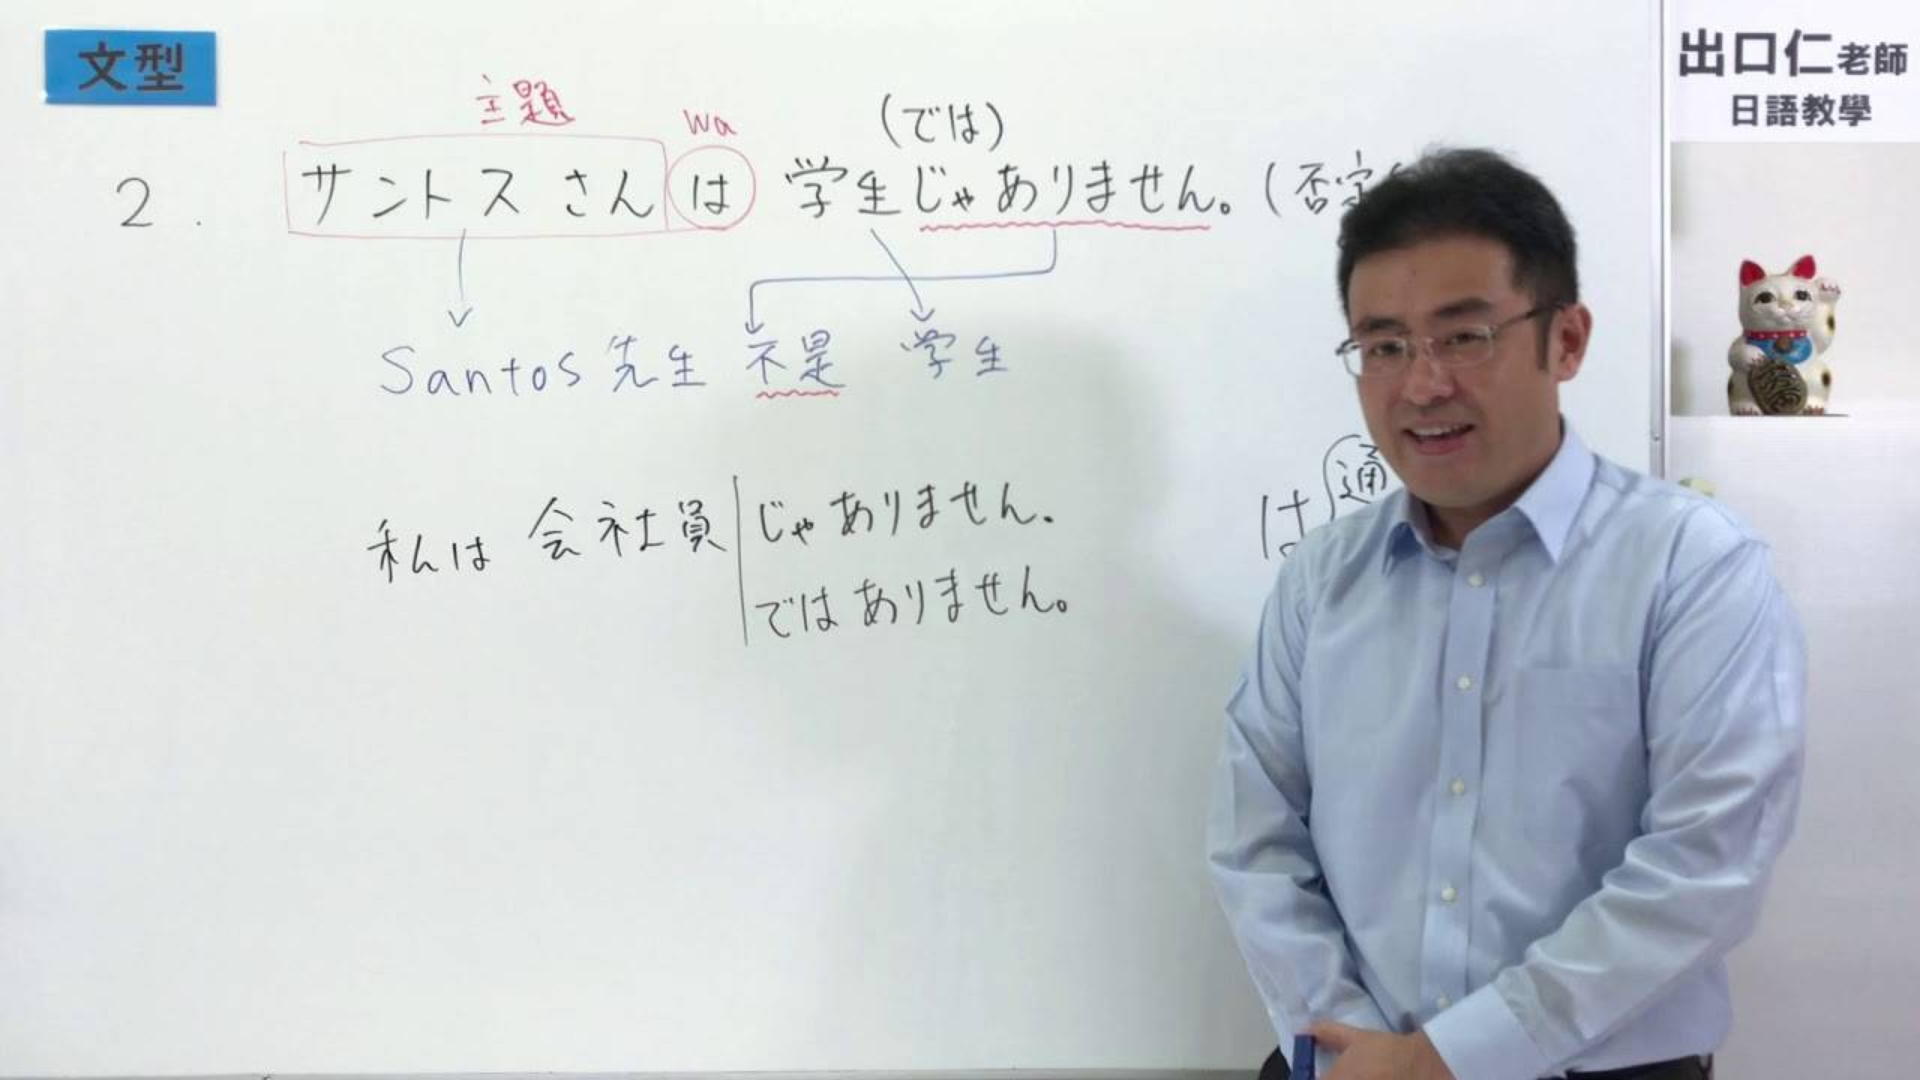 文型
出口仁老師
日語教學
主題
wa
(では)
2. サントスさんは 学生じゃありません。(否定
Santos 先生 不是 学生
私は 会社員 じゃありません.
ではありません。
は
通